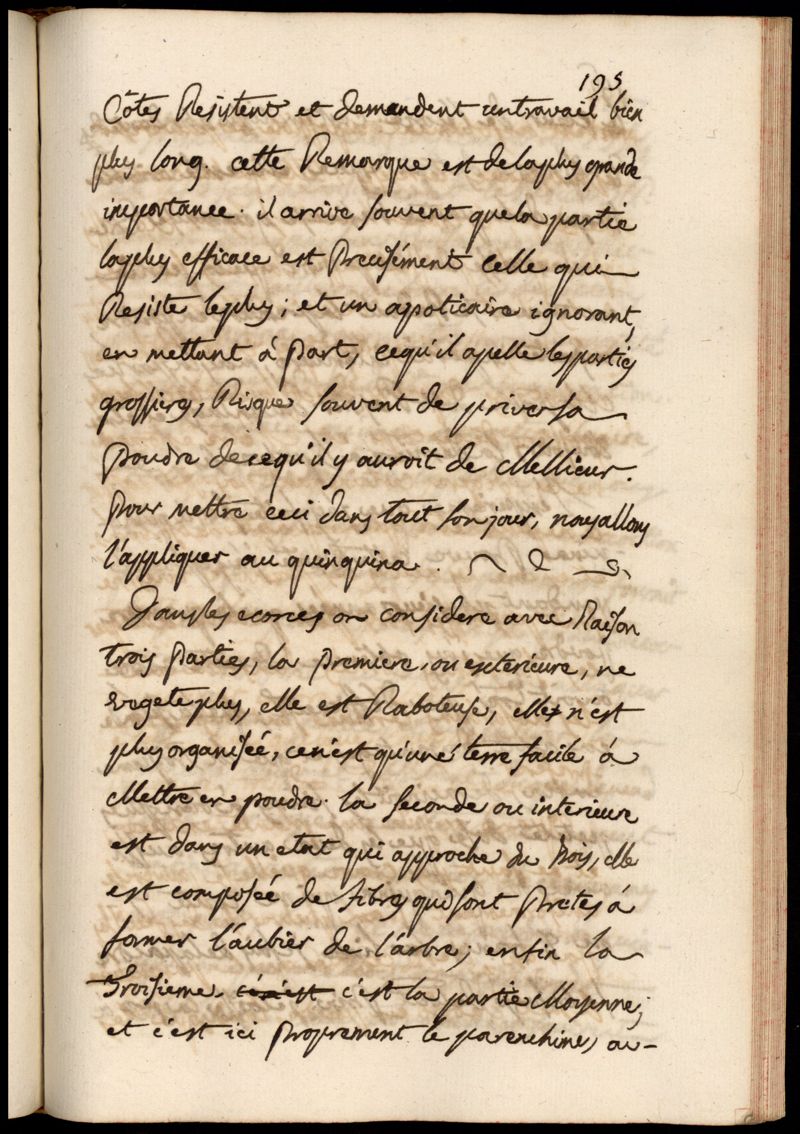 195
Côtes Resistent et demandent untravail bien
plus long. cette Remarque est delaplus grande
importance. il arrive souvent quela partie
laplus efficace est Precisément celle qui
Resiste leplus; et un apoticaire ignorant,
en mettant á part, cequ'il apelle lesparties
grossieres, Risque souvent de priver sa
poudre decequ'il y auroit de Mellieur.
pour mettre ceci dans tout son jour, nousallons
l'appliquer au quinquina.
Dansles ecorces on considere avec Raison
trois parties, la premiere, ou exterieure, ne
vegete plus, elle est Raboteuse, elle n'est
plus organisée, cen'est qu'une terre facile á
Mettre en poudre. la seconde ou interieure
est dans un etat qui approche du Bois, elle
est composée de fibres qui sont Pretes á
former l'aubier de l'arbre; enfin la
Troisieme c'est la partie Moyenne;
et c'est ici proprement le parenchime, au-